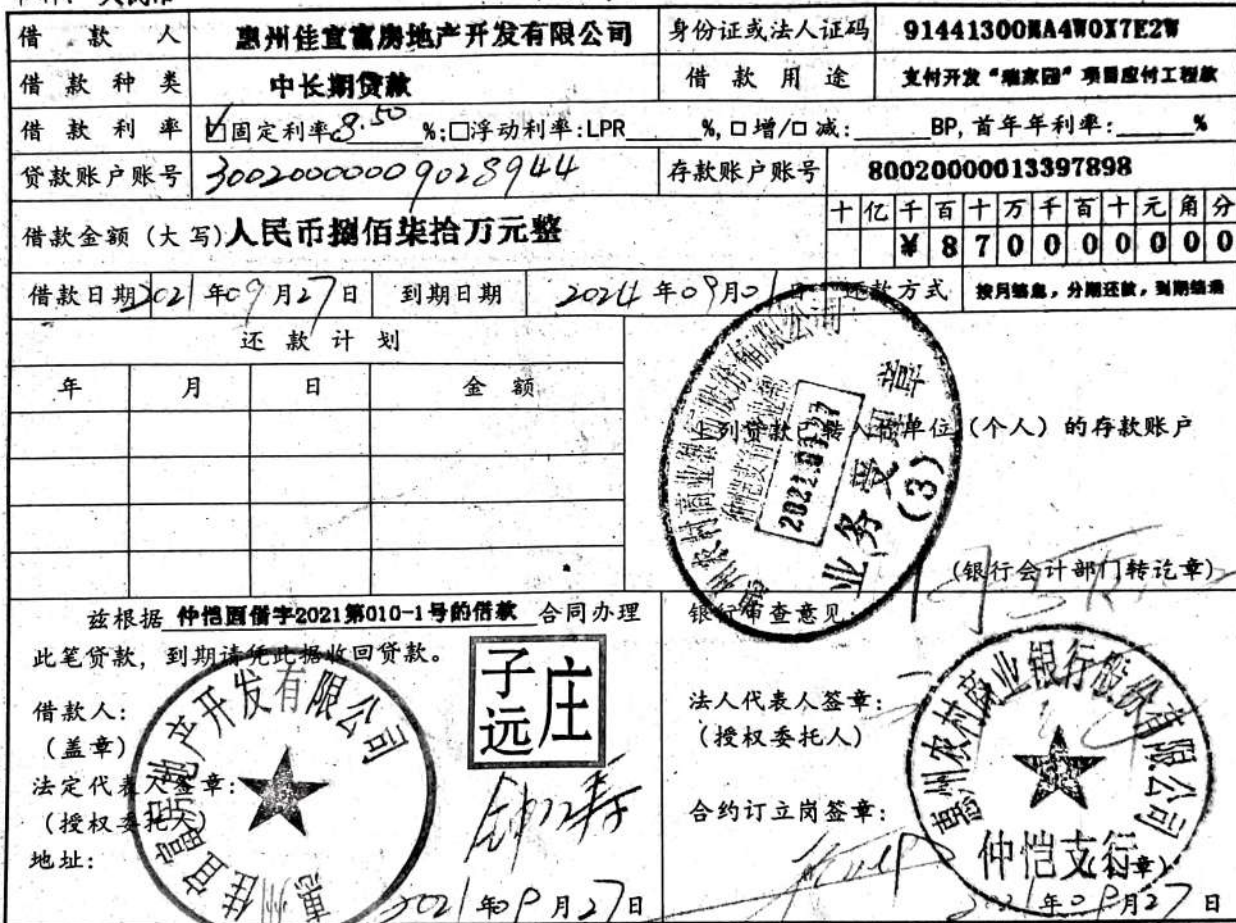 人民币
借款人 惠州佳宜富房地产开发有限公司 身份证或法人证码 91441300MA4W0X7E2W
借款种类 中长期贷款 借款用途 支付开发“瑞家园”项目应付工程款
借款利率 ☑固定利率8.50%;□浮动利率:LPR______%,□增/□减:______BP,首年年利率:______%
贷款账户账号 30020000009028944 存款账户账号 80020000013397898
借款金额(大写)人民币捌佰柒拾万元整 十亿千百十万千百十元角分
¥870000000
借款日期2021年09月27日 到期日期 2024年09月01日 还款方式 按月结息,分期还款,到期结清
还款计划
年 月 日 金额
上列贷款已转入借单位(个人)的存款账户
惠州农村商业银行股份有限公司
仲恺支行营业部
2021.09.27
业务受理章
(3)
(银行会计部门转讫章)
兹根据 仲恺固借字2021第010-1号的借款 合同办理
此笔贷款,到期请凭此据收回贷款。
借款人:
(盖章)
法定代表人签章:
(授权委托人)
地址:
惠州佳宜富房地产开发有限公司
庄子远
2021年09月27日
银行审查意见:
法人代表人签章:
(授权委托人)
合约订立岗签章:
惠州农村商业银行股份有限公司
仲恺支行
(公章)
2021年09月27日